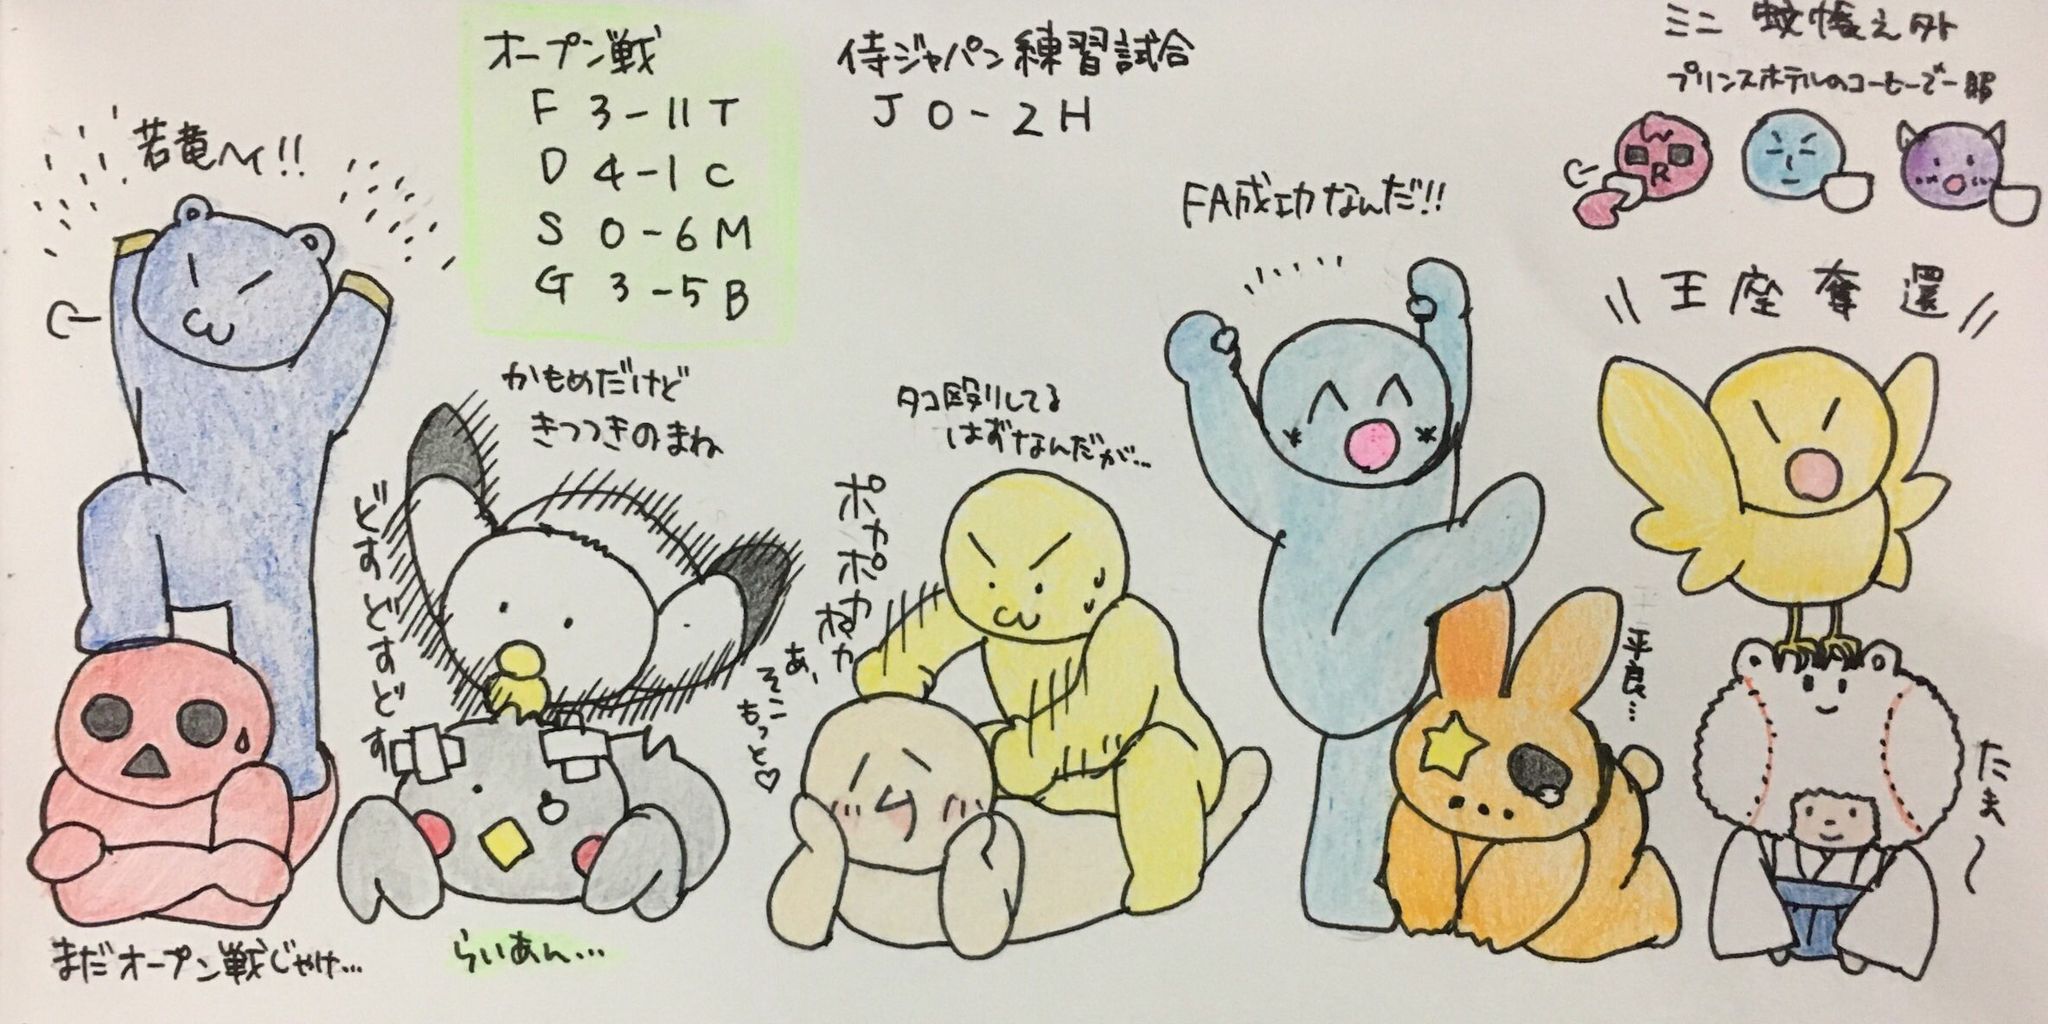 オープン戦
F 3-11 T
D 4-1 C
S 0-6 M
G 3-5 B
侍ジャパン練習試合
J 0-2 H
ミニ 蚊帳え外
プリンスホテルのコーヒーで一服
R
若竜ヘイ!!
まだオープン戦じゃけ…
かもめだけど
きつつきのまね
どすどすどす
らいあん…
タコ殴りしてる
はずなんだが…
ポカポカポカ
あ、
そこ
もっと♡
FA成功なんだ!!
平良…
王座奪還
たま〜